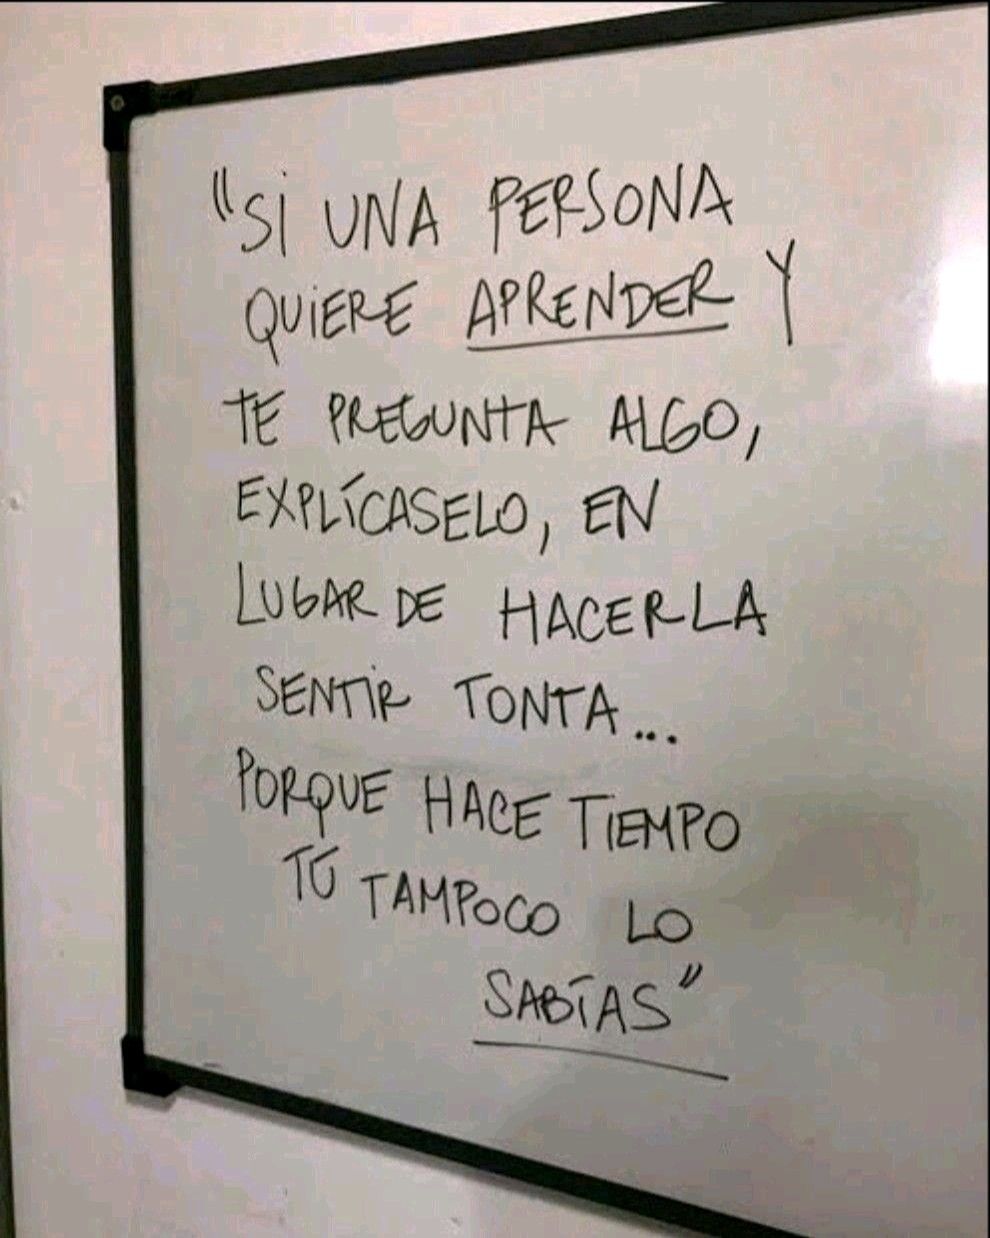 "Si UNA PERSONA
QUiERE APRENDER Y
TE PREGUNTA ALGO,
EXPLÍCASELO, EN
LUGAR DE HACERLA
SENTiR TONTA...
PORQUE HACE TiEMPO
TÚ TAMPOCO LO
SABÍAS"